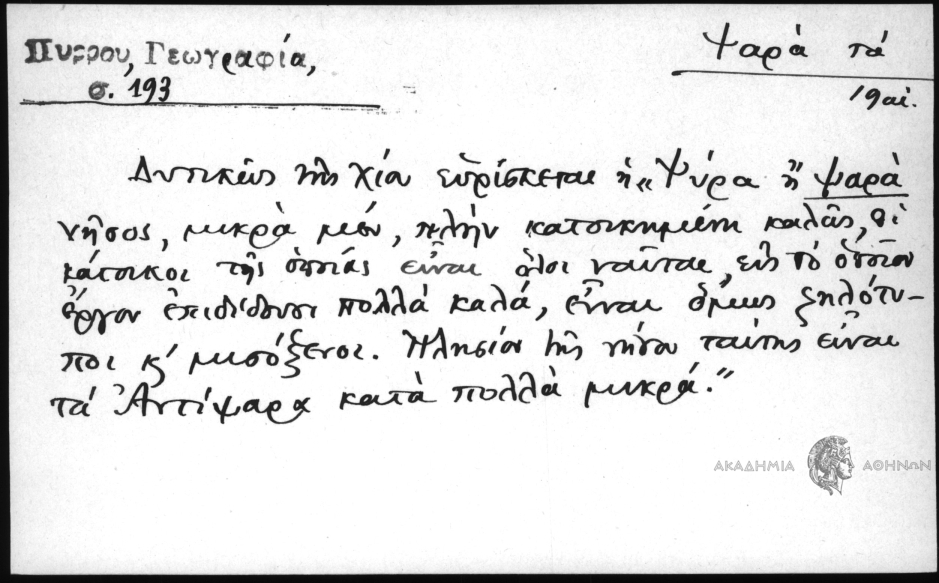 Πυρρου, Γεωγραφία,
σ. 193
Ψαρὰ τά
19 αἰ.
Δυτικῶς τῆς Χίου εὑρίσκεται ἡ „Ψύρα ἢ Ψαρὰ
νῆσος, μικρὰ μέν, πλὴν κατοικημένη καλῶς, οἱ
κάτοικοι τῆς ὁποίας εἶναι ὅλοι ναῦται, εἰς τὸ ὁποῖον
ἔργον ἐπιδίδουσι πολλὰ καλά, εἶναι ὅμως ζηλότυ-
ποι κ' μισόξενοι. Πλησίον τῆς νήσου ταύτης εἶναι
τά Ἀντίψαρα κατὰ πολλὰ μικρά."
ΑΚΑΔΗΜΙΑ ΑΘΗΝΩΝ